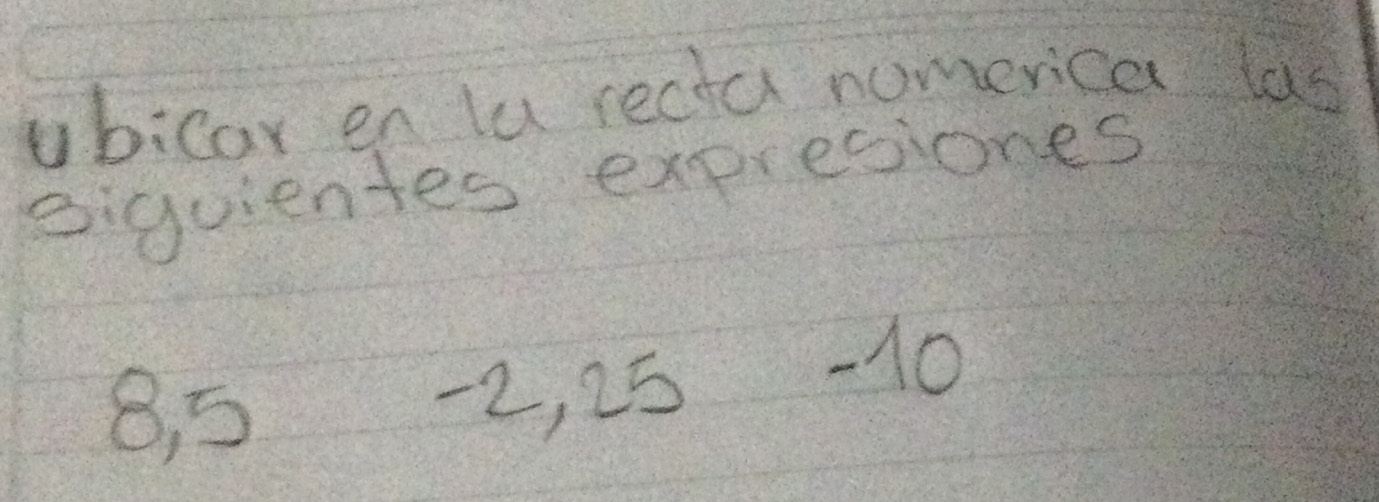 ubicar en la recta numerica las
siguientes expresiones
8,5 -2,25 -10